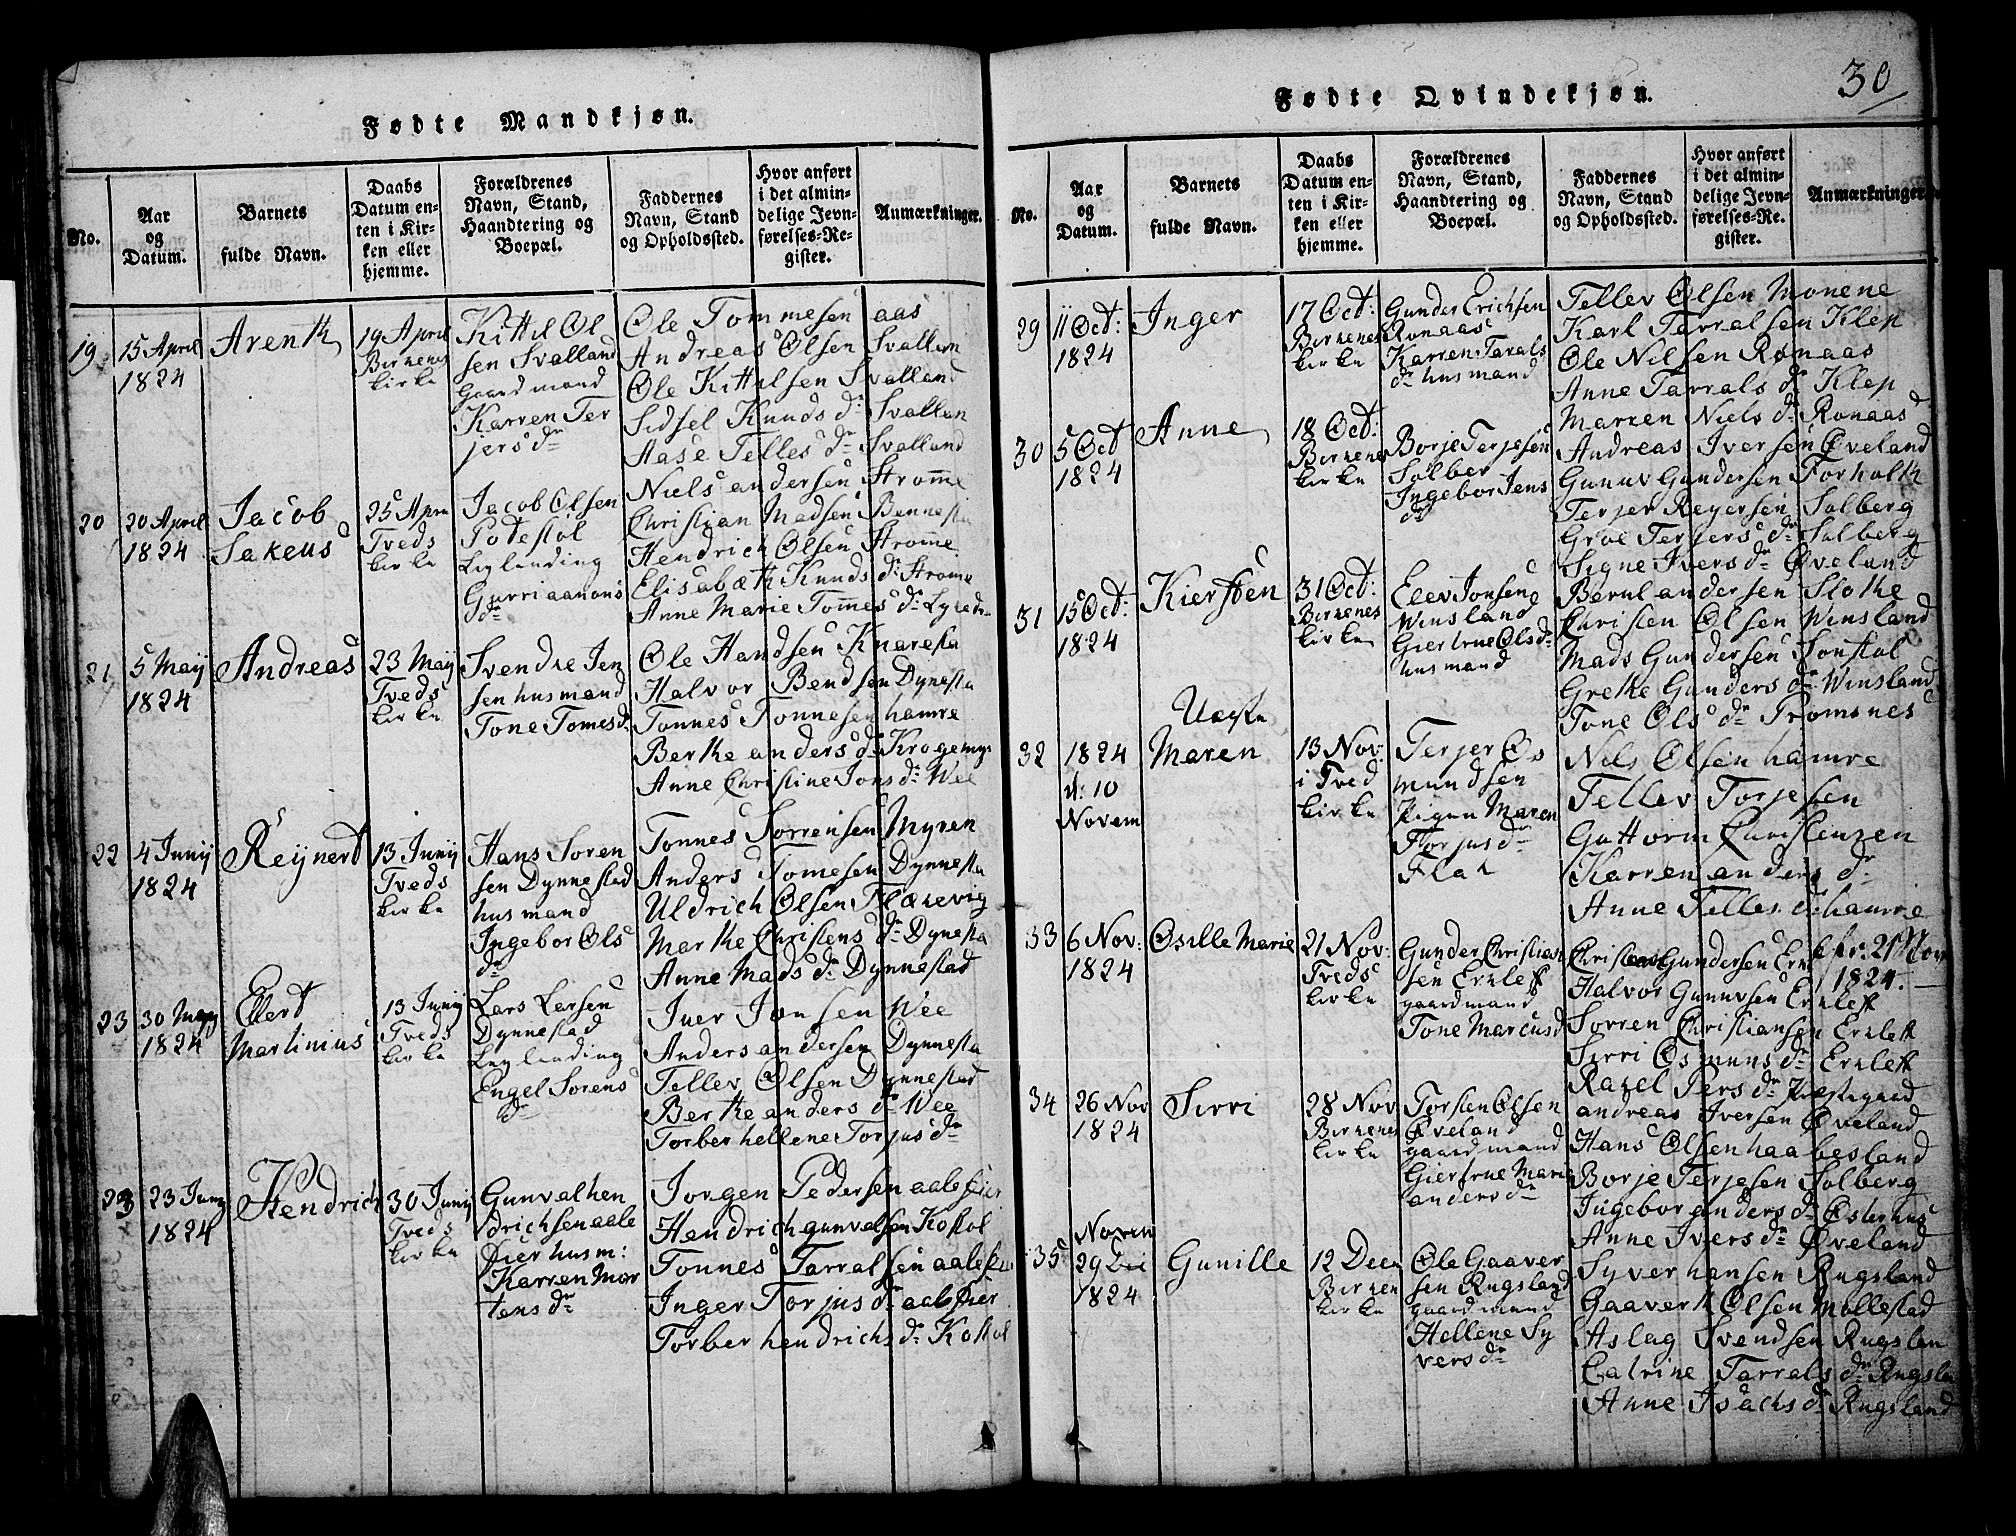 Fødte Mandkjøn.
No.
Aar
og
Datum.
Barnets
fulde Navn.
Daabs
Datum en-
ten i Kir-
ken eller
hjemme.
Forældrenes
Navn, Stand,
Haandtering og
Boepæl.
Faddernes
Navn, Stand
og Opholdssted.
Hvor anført
i det almin-
delige Jevn-
førelses-Re-
gister.
Anmærkninger.
19
15 April
1824
Arenth
19 April
Birkenes
kirke
Kittil Ol
sen Svalland
Gaardmand
Karren Ter
jers dr
Ole Tommesen aas
Andreas Olsen Svallan
Ole Kittilsen Svalland
Sidsel Knuds dr Svallan
Aase Telles dr Svalland
20
20 April
1824
Jacob
Sakeus
25 Apri
Tveds
kirke
Jacob Olsen
Potestol
Leylending
Gurri aanons
dr
Niels andersen Stromme
Christian Madsen Bennesta
Hendrich Olsen Stromme
Elisabæth Knuds dr Strome
Anne Marie Tommes dr
21
5 Maij
1824
Andreas
23 Maij
Tveds
kirke
Svendre Jen
sen husmand
Tone Tomes dr
Ole Handsen Knaresta
Halvor Bendsen Dynesta
Tonnes Tonnesen hamre
Berthe anders dr Krogemyr
Anne Christine Jons dr Wee
22
4 Junij
1824
Reijnert
13 Junij
Tveds
kirke
Hans Soren
sen Dynnestad
husmand
Ingebor Ols
dr
Tonnes Sorrensen Myren
Anders Tomesen Dynnesta
Uldrich Olsen Flakevig
Marthe Christens dr Dynesta
Anne Mads dr Dynnestad
23
30 Maij
1824
Ellert
Martinius
13 Junij
Tveds
kirke
Lars Larsen
Dynnestad
Leylending
Engel Sorens
dr
Iver Jonsen Wee
Anders andersen Dynnesta
Tellev Olsen Dynnestad
Berthe anders dr Wee
Torber hellene Torjus dr
23 Junij
1824
Hendrich
30 Junij
Tveds
kirke
Gunval hen
drichsen aale
fier husm:
Karren Mor
tens dr
Jorgen Pedersen aalefier
Hendrich gunvalsen Kostol
Tonnes Tarralsen aalefier
Inger Torjus dr aalefier
Torber hendrichs dr Kostol
30
Fødte Qvindekjøn.
No.
Aar
og
Datum.
Barnets
fulde Navn.
Daabs
Datum en-
ten i Kir-
ken eller
hjemme.
Forældrenes
Navn, Stand,
Haandtering og
Boepæl.
Faddernes
Navn, Stand
og Opholdssted.
Hvor anført
i det almin-
delige Jevn-
førelses-Re-
gister.
Anmærkninger
29
11 Oct:
1824
Inger
17 Oct:
Birkenes
kirke
Gunder Erichsen
Ronaas
Karren Tarals
dr husmand
Tellev Olsen Monene
Karl Tarralsen Klep
Ole Nilsen Ronaas
Anne Tarrals dr Klep
Marren Niels dr Ronaas
30
5 Oct
1824
Anne
18 Oct:
Birkenes
kirke
Borje Terjesen
Solber
Ingebor Jens
dr
Andreas Iversen Øveland
Gunuv Gundersen Forholth
Terjer Reyersen Solberg
Groe Terjers dr Solberg
Signe Ivers dr Øveland
31
15 Oct:
1824
Kiersten
31 Oct:
Birkenes
kirke
Elev Jonsen
Winsland
Giertrue Ols dr
husmand
Bernt andersen Slotke
Christen Olsen Winsland
Mads Gundersen Sonstol
Grethe Gunders dr Winsland
Tone Ols dr Tromsnes
32
1824
d: 10
Novem
Uegte
Maren
13 Nov:
i Tved
kirke
Terjer Os
mundsen
Pigen Maren
Torjus dr
Flak
Nils Olsen hamre
Tellev Torjesen
Guttorm Christenzen
Karren anders dr
Anne Telles dr hamre
33
6 Nov:
1824
Osille Marie
21 Nov:
Tveds
kirke
Gunder Christian
sen Erkleft
gaardmand
Tone Marcus d
Christen Gundersen
Halvor Gunuvsen Erkleft
Sorren Christiansen Erkleft
Sirri Osmuns dr Erkleft
Rakel Pers dr Præstegaad
21 Nov
1824.
34
26 Nov
1824
Sirri
28 Nov
Birkenes
kirke
Torsten Olsen
Øveland
gaardmand
Giertrue Marie
anders dr
andreas Iversen Øveland
Hans Olsen haabesland
Borje Terjesen Solberg
Ingebor anders dr Østerhus
Anne Ivers dr Øveland
35
Novem
29
1824
Gunille
12 Decn
Birken
kirke
Ole Gaaver
sen Rugsland
gaardmand
Hellene Sy
vers dr
Syver hansen Rugsland
Gaaverth Olsen Mollestad
Aslag Svendsen Rugslan
Catrine Tarrals dr Rugsla
Anne Isachs dr Rugsland